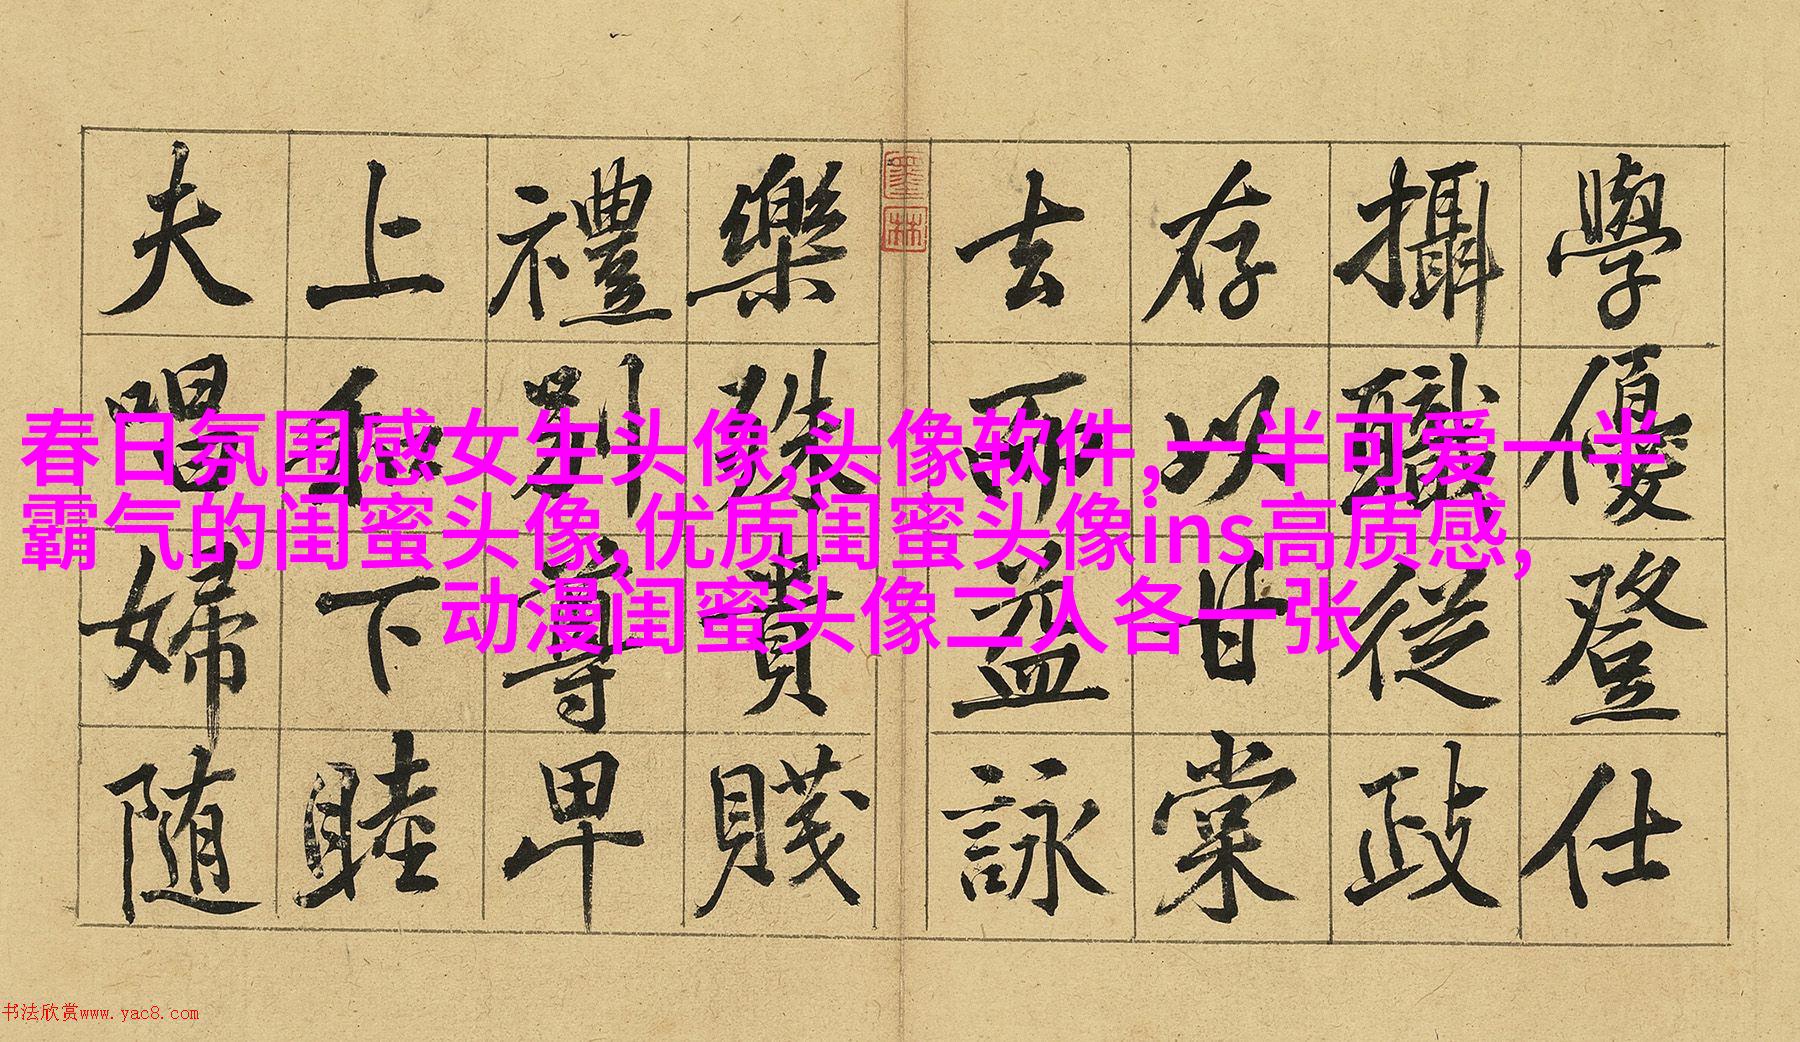 學優登仕
攝職從政
存以甘棠
去而益詠
樂殊貴賤
禮別尊卑
上和下睦
夫唱婦随
墨林
春日氛围感女生头像,头像软件,一半可爱一半
霸气的闺蜜头像,优质闺蜜头像ins高质感,
动漫闺蜜头像二人各一张
书法欣赏www.yac8.com